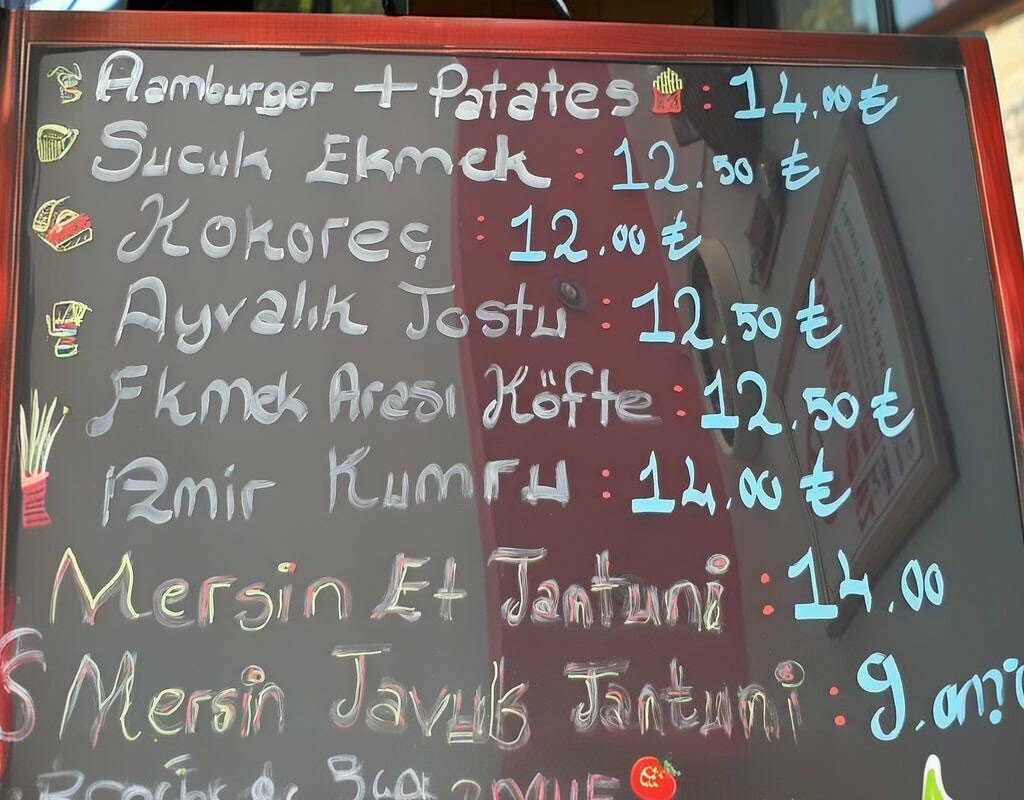 Hamburger + Patates : 14.00 ₺
Sucuk Ekmek : 12.50 ₺
Kokoreç : 12.00 ₺
Ayvalık Tostu : 12.50 ₺
Ekmek Arası Köfte : 12.50 ₺
İzmir Kumru : 14.00 ₺
Mersin Et Tantuni : 14.00
Mersin Tavuk Tantuni : 9.